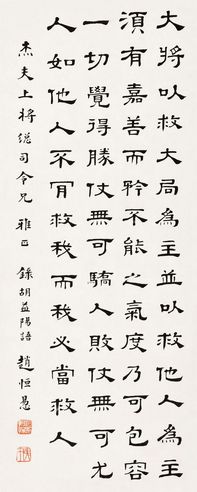 大將以救大局為主並以救他人為主
須有嘉善而矜不能之氣度乃可包容
一切覺得勝仗無可驕人敗仗無可尤
人如他人不肎救我而我必當救人
杰夫上將總司令兄 雅正 錄胡益陽語 趙恒惪